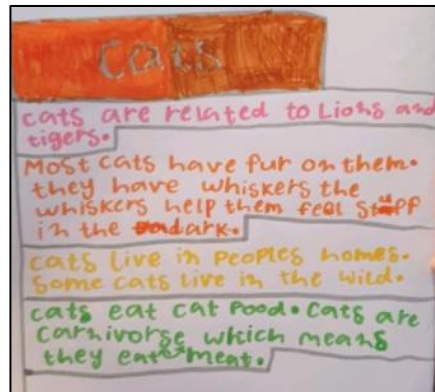 cats
cats are related to Lions and
tigers.
Most cats have fur on them.
they have whiskers the
whiskers help them feel stuff
in the dark.
cats live in peoples homes.
some cats live in the wild.
cats eat cat food. cats are
carnivorse which means
they eat meat.